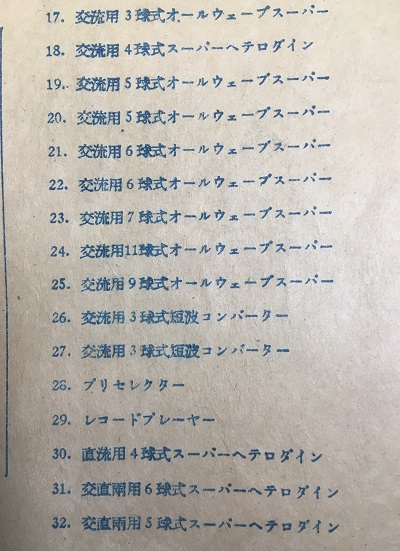 17. 交流用3球式オールウェーブスーパー
18. 交流用4球式スーパーヘテロダイン
19. 交流用5球式オールウェーブスーパー
20. 交流用5球式オールウェーブスーパー
21. 交流用6球式オールウェーブスーパー
22. 交流用6球式オールウェーブスーパー
23. 交流用7球式オールウェーブスーパー
24. 交流用11球式オールウェーブスーパー
25. 交流用9球式オールウェーブスーパー
26. 交流用3球式短波コンバーター
27. 交流用3球式短波コンバーター
28. プリセレクター
29. レコードプレーヤー
30. 直流用4球式スーパーヘテロダイン
31. 交直両用6球式スーパーヘテロダイン
32. 交直両用5球式スーパーヘテロダイン